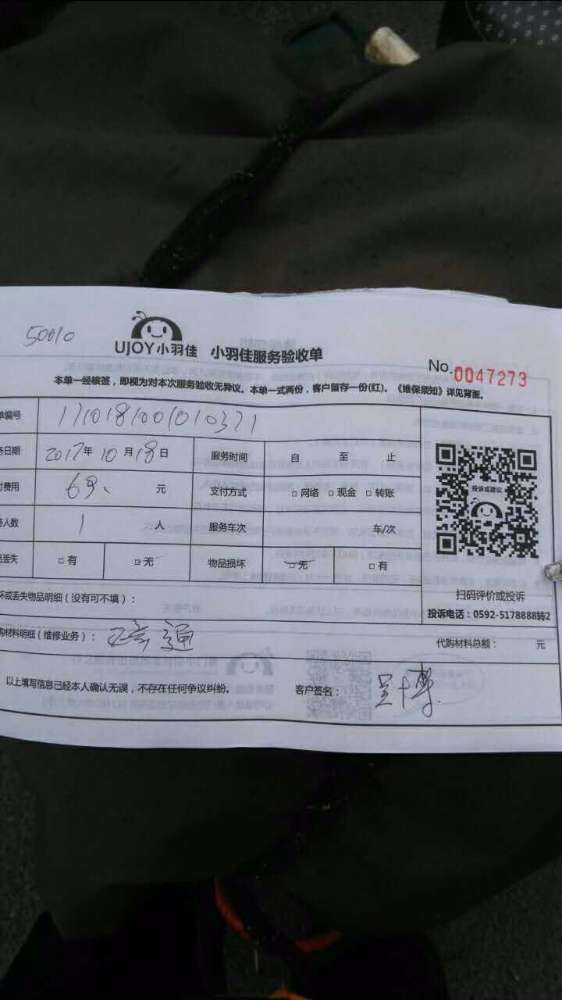 50010
UJOY小羽佳 小羽佳服务验收单
No.0047273
本单一经核签，即视为对本次服务验收无异议。本单一式两份，客户留存一份(红)。《维保须知》详见背面。
单编号 1710181001010371
务日期 2017年10月18日 服务时间 自 至 止
付费用 69、 元 支付方式 □网络 □现金 □转账
务人数 1 人 服务车次 车/次
品丢失 □有 □无 物品损坏 □无 □有
投诉或建议
扫码评价或投诉
投诉电话：0592-5178888转2
坏或丢失物品明细（没有可不填）：
购材料明细（维修业务）： 通 代购材料总额： 元
以上填写信息已经本人确认无误，不存在任何争议纠纷。 客户签名： 博